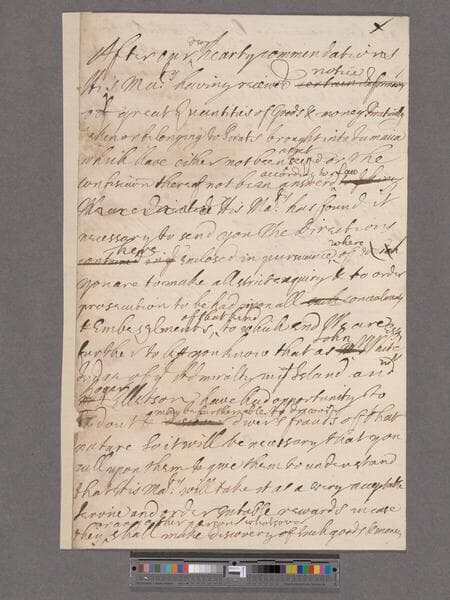 x
After our very hearty commendations
His Ma:ty having receiv'd notice certain Informacon
of great Quantities of Goods & money
taken or belonging to Pirats brought into Jamaica
which have either not been seized or the
confiscacon thereof not been answered according to law
His Ma:ty has found it
necessary to send you The Directions
here inclosed in pursuance of which where
you are to make all strict enquiry & to order
prosecution to be had upon all such concealmts
& Embezelments of that kind, to which end We are
further to let you know that as John
Judge of ye Admiralty in yt Island and
Roger Elletson have had opportunity to
& may be furtherable to discover divers frauds of that
nature So it will be necessary that you
call upon them & give them to understand
that His Ma:ty will take it as a very acceptable
service and order suitable rewards in case
they or any other persons whatsoever
shall make discovery of such goods & money